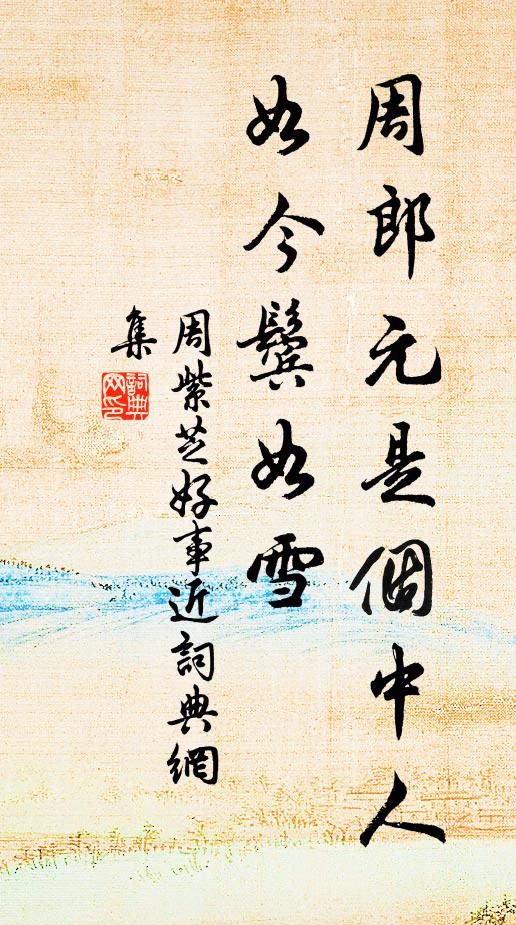 周郎元是個中人
如今鬢如雪
周紫芝好事近詞典網
集
詞典
网印